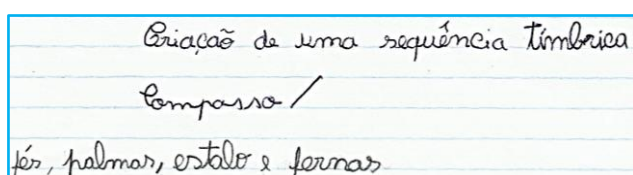 Criação de uma sequência tímbrica
Compasso /
pés, palmas, estalo e pernas